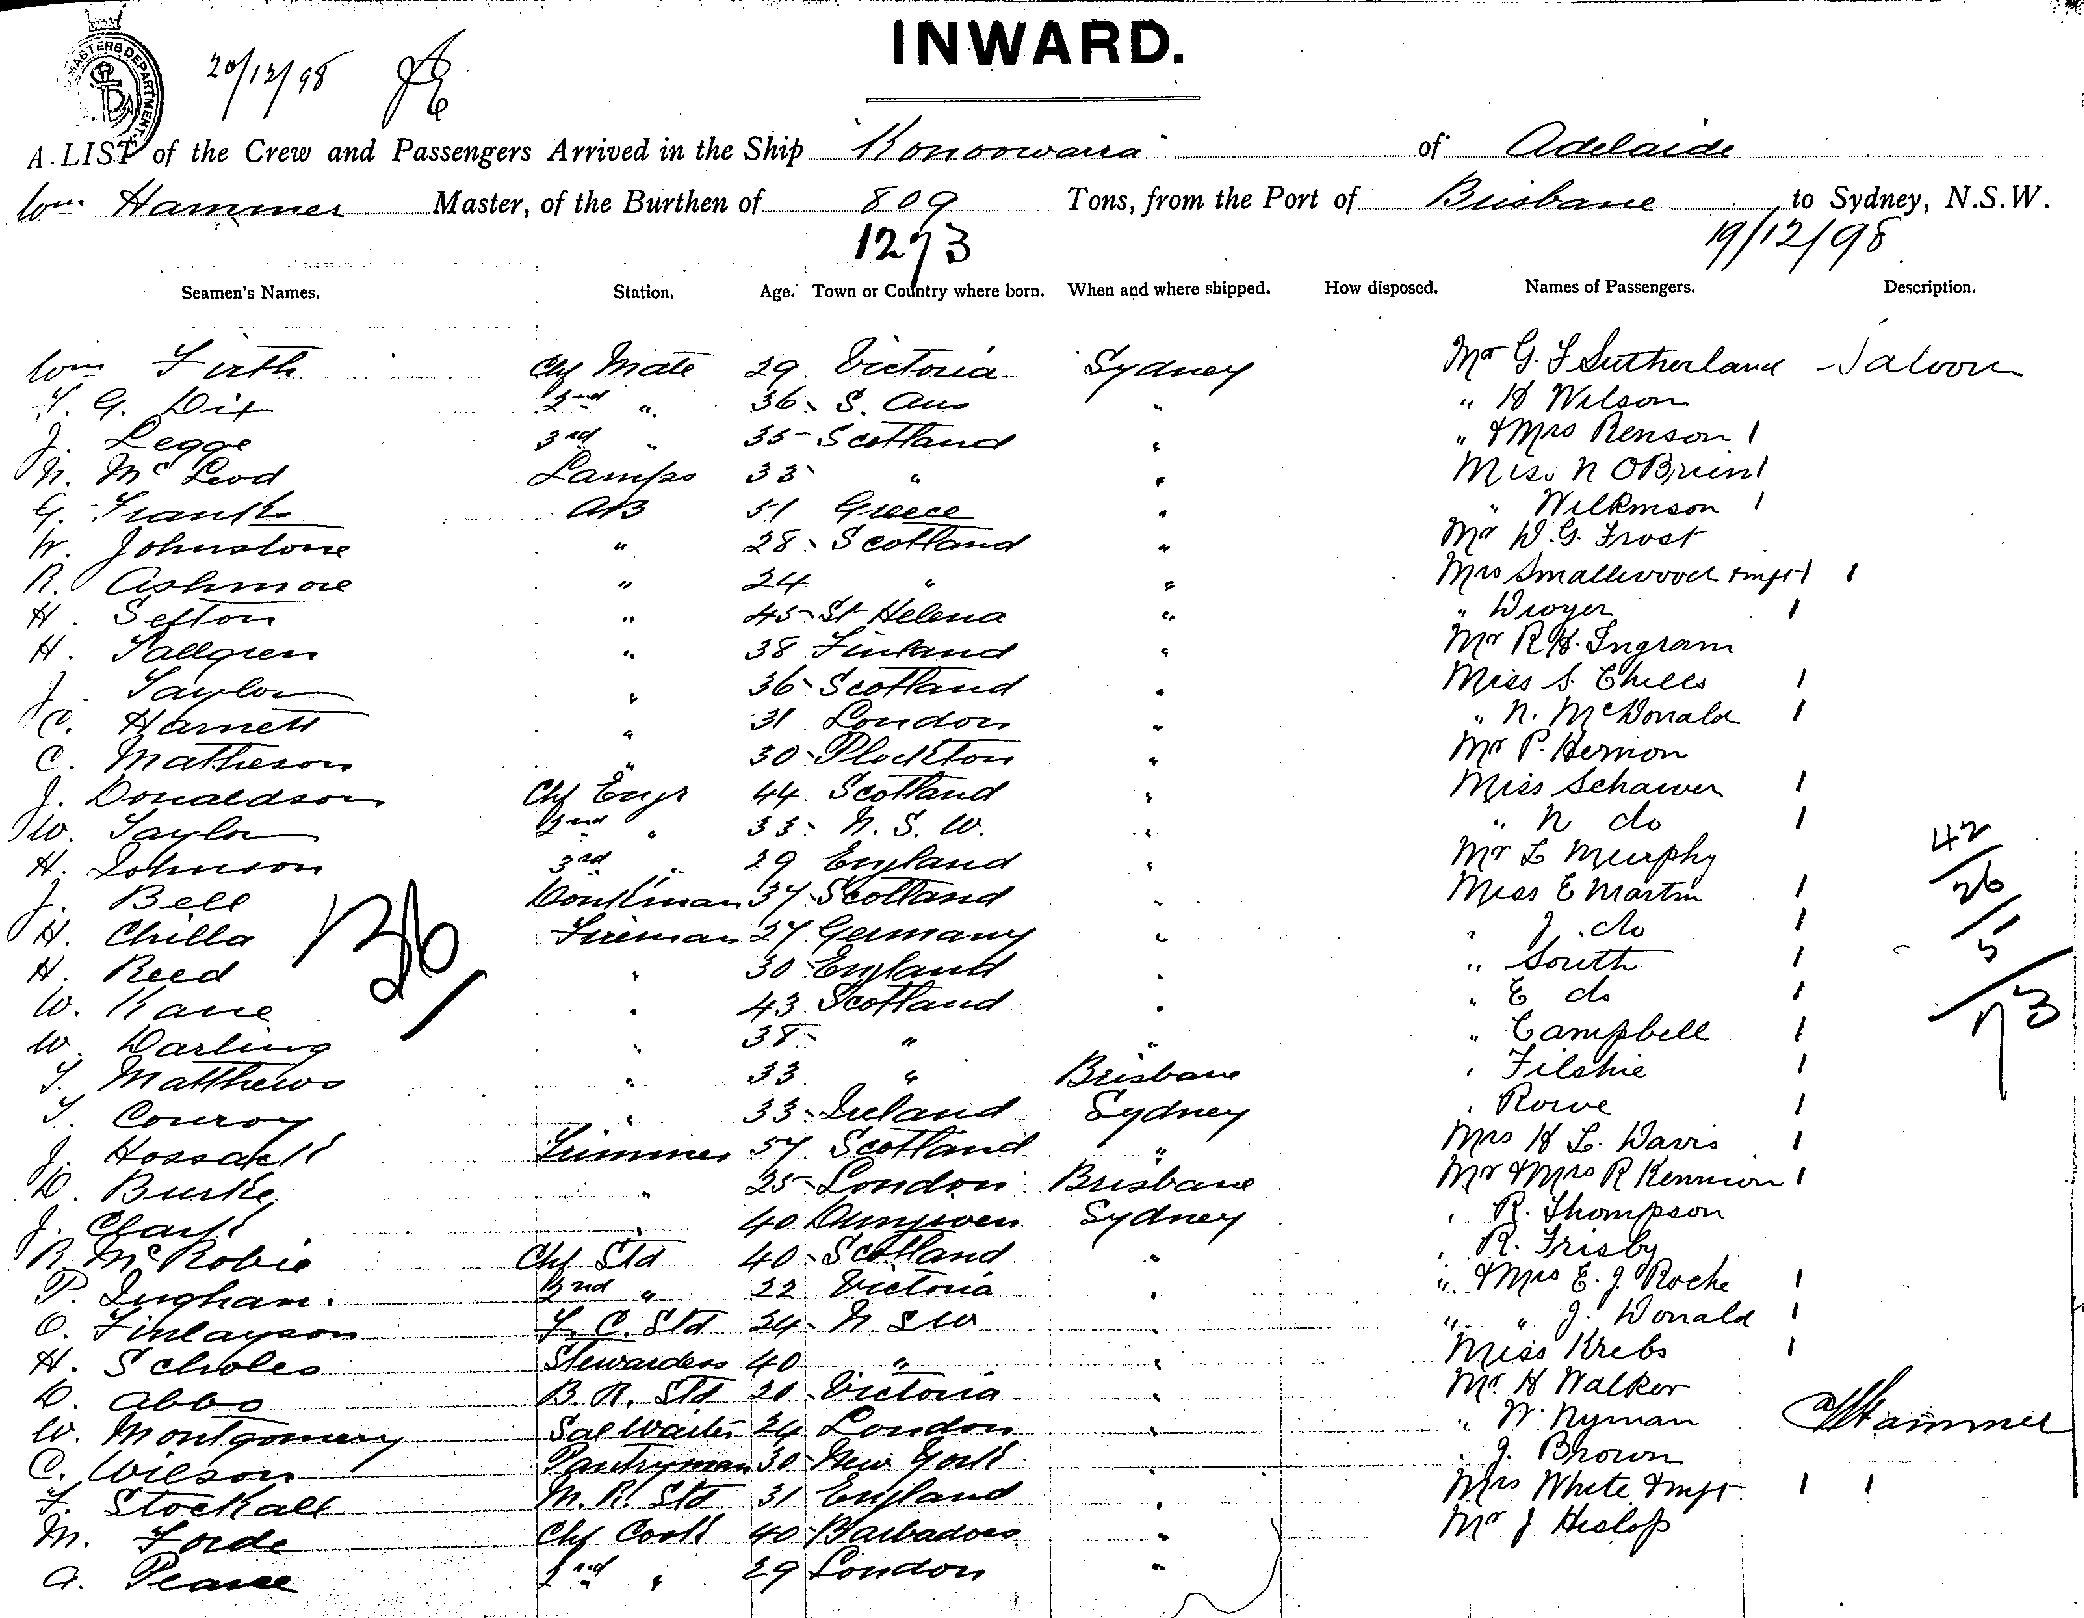 INWARD.
MASTERS DEPARTMENT.
20/12/98
A LIST of the Crew and Passengers Arrived in the Ship "Konoowarra" of Adelaide
Wm Hammer Master, of the Burthen of 809 Tons, from the Port of Brisbane to Sydney, N.S.W.
1273 19/12/98
Seamen's Names. Station. Age. Town or Country where born. When and where shipped. How disposed. Names of Passengers. Description.
Wm Firth Chf Mate 29 Victoria Sydney Mr G. F Sutherland Saloon
T. G. Dix 2nd " 36 S. Aus " " H Wilson
J. Legge 3rd " 35 Scotland " " & Mrs Benson 1
N. McLeod Lamps 33 " " Miss N OBrien 1
G. Frank AB 51 Greece " " Wilkinson 1
W. Johnstone " 28 Scotland " Mr W. G. Frost
R. Ashmore " 24 " " Mrs Smallwood & inft 1 1
H. Sefton " 45 St Helena " " Dwyer 1
H. Sallgren " 38 Finland " Mr R H. Ingram
J. Taylor " 36 Scotland " Miss S. Chills 1
C. Harnett " 31 London " " N. McDonald 1
C. Matheson " 30 Plockton " Mr P. Hernon
J. Donaldson Chf Engr 44 Scotland " Miss Schawer 1
W. Taylor 2nd " 33 N. S. W. " " N do 1
H. Johnson 3rd " 29 England " Mr L Murphy
J. Bell Donkman 37 Scotland " Miss E Martin 1
H. Chilla Fireman 27 Germany " " J do 1
H. Reed " 30 England " " South 1
W. Kane " 43 Scotland " " E do 1
W. Darling " 38 " " " Campbell 1
T. Matthews " 33 " Brisbane " Filshie 1
T. Conroy " 33 Ireland Sydney " Rowe 1
J. Hossack Trimmer 57 Scotland " Mrs H L. Davis 1
D. Burke " 25 London Brisbane Mr & Mrs R Kennion 1
J. Clark " 40 Sydney " R. Thompson
R McRobie Chf Std 40 Scotland " " R. Frisby
P. Ingham. 2nd " 22 Victoria " " & Mrs E. J Roche 1
O. Finlayson F. C. Std 24 N S W " " " J. Donald 1
H. Scholes Stewardess 40 " " Miss Krebs 1
D. Abbo B. R. Std 20 Victoria " Mr. H Walker
W. Montgomery Sal Waiter 24 London " " W. Nyman
C. Wilson Pantryman 30 New York " " J. Brown
F. Stockall M. R. Std 31 England " Mrs White & inft 1 1
M. Forde Chf Cook 40 Barbadoes " Mr J Hislop
A. Pearce 2nd " 29 London "
42
26
5
73
Hammer